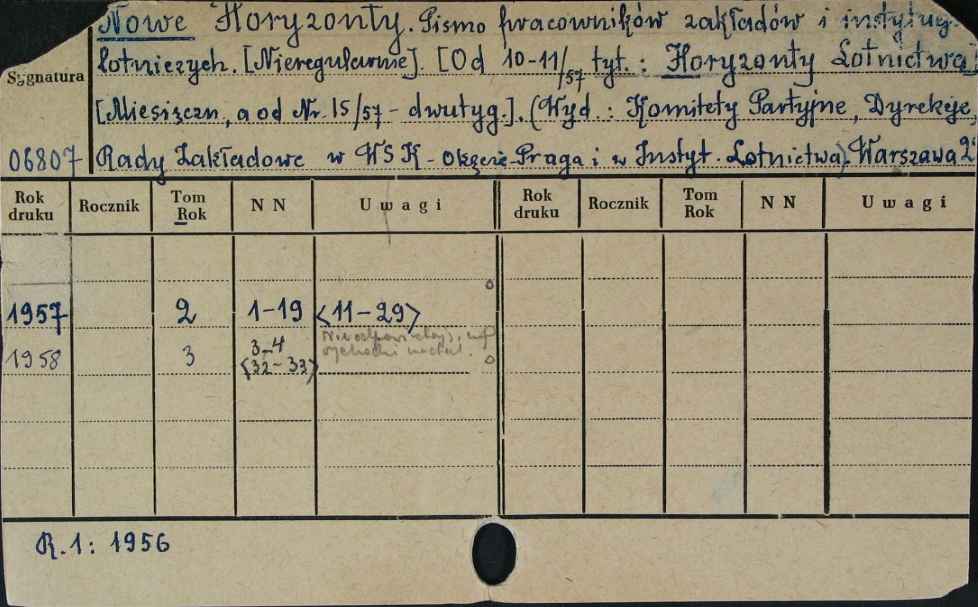 Nowe Horyzonty. Pismo pracowników zakładów i instytucy-
lotniczych. [Nieregularnie]. [Od 10-11/57 tyt.: Horyzonty Lotnictwa]
Sygnatura
[Miesięczn, a od Nr. 15/57 - dwutyg.]. (Wyd.: Komitety Partyjne, Dyrekcje,
06807 Rady Zakładowe w WSK - Okęcie-Praga i w Instyt. Lotnictwa). Warszawa 2°
Rok druku Rocznik Tom Rok N N Uwagi Rok druku Rocznik Tom Rok N N Uwagi
1957 2 1-19 <11-29>
1958 3 3-4 <32-33>
R.1: 1956